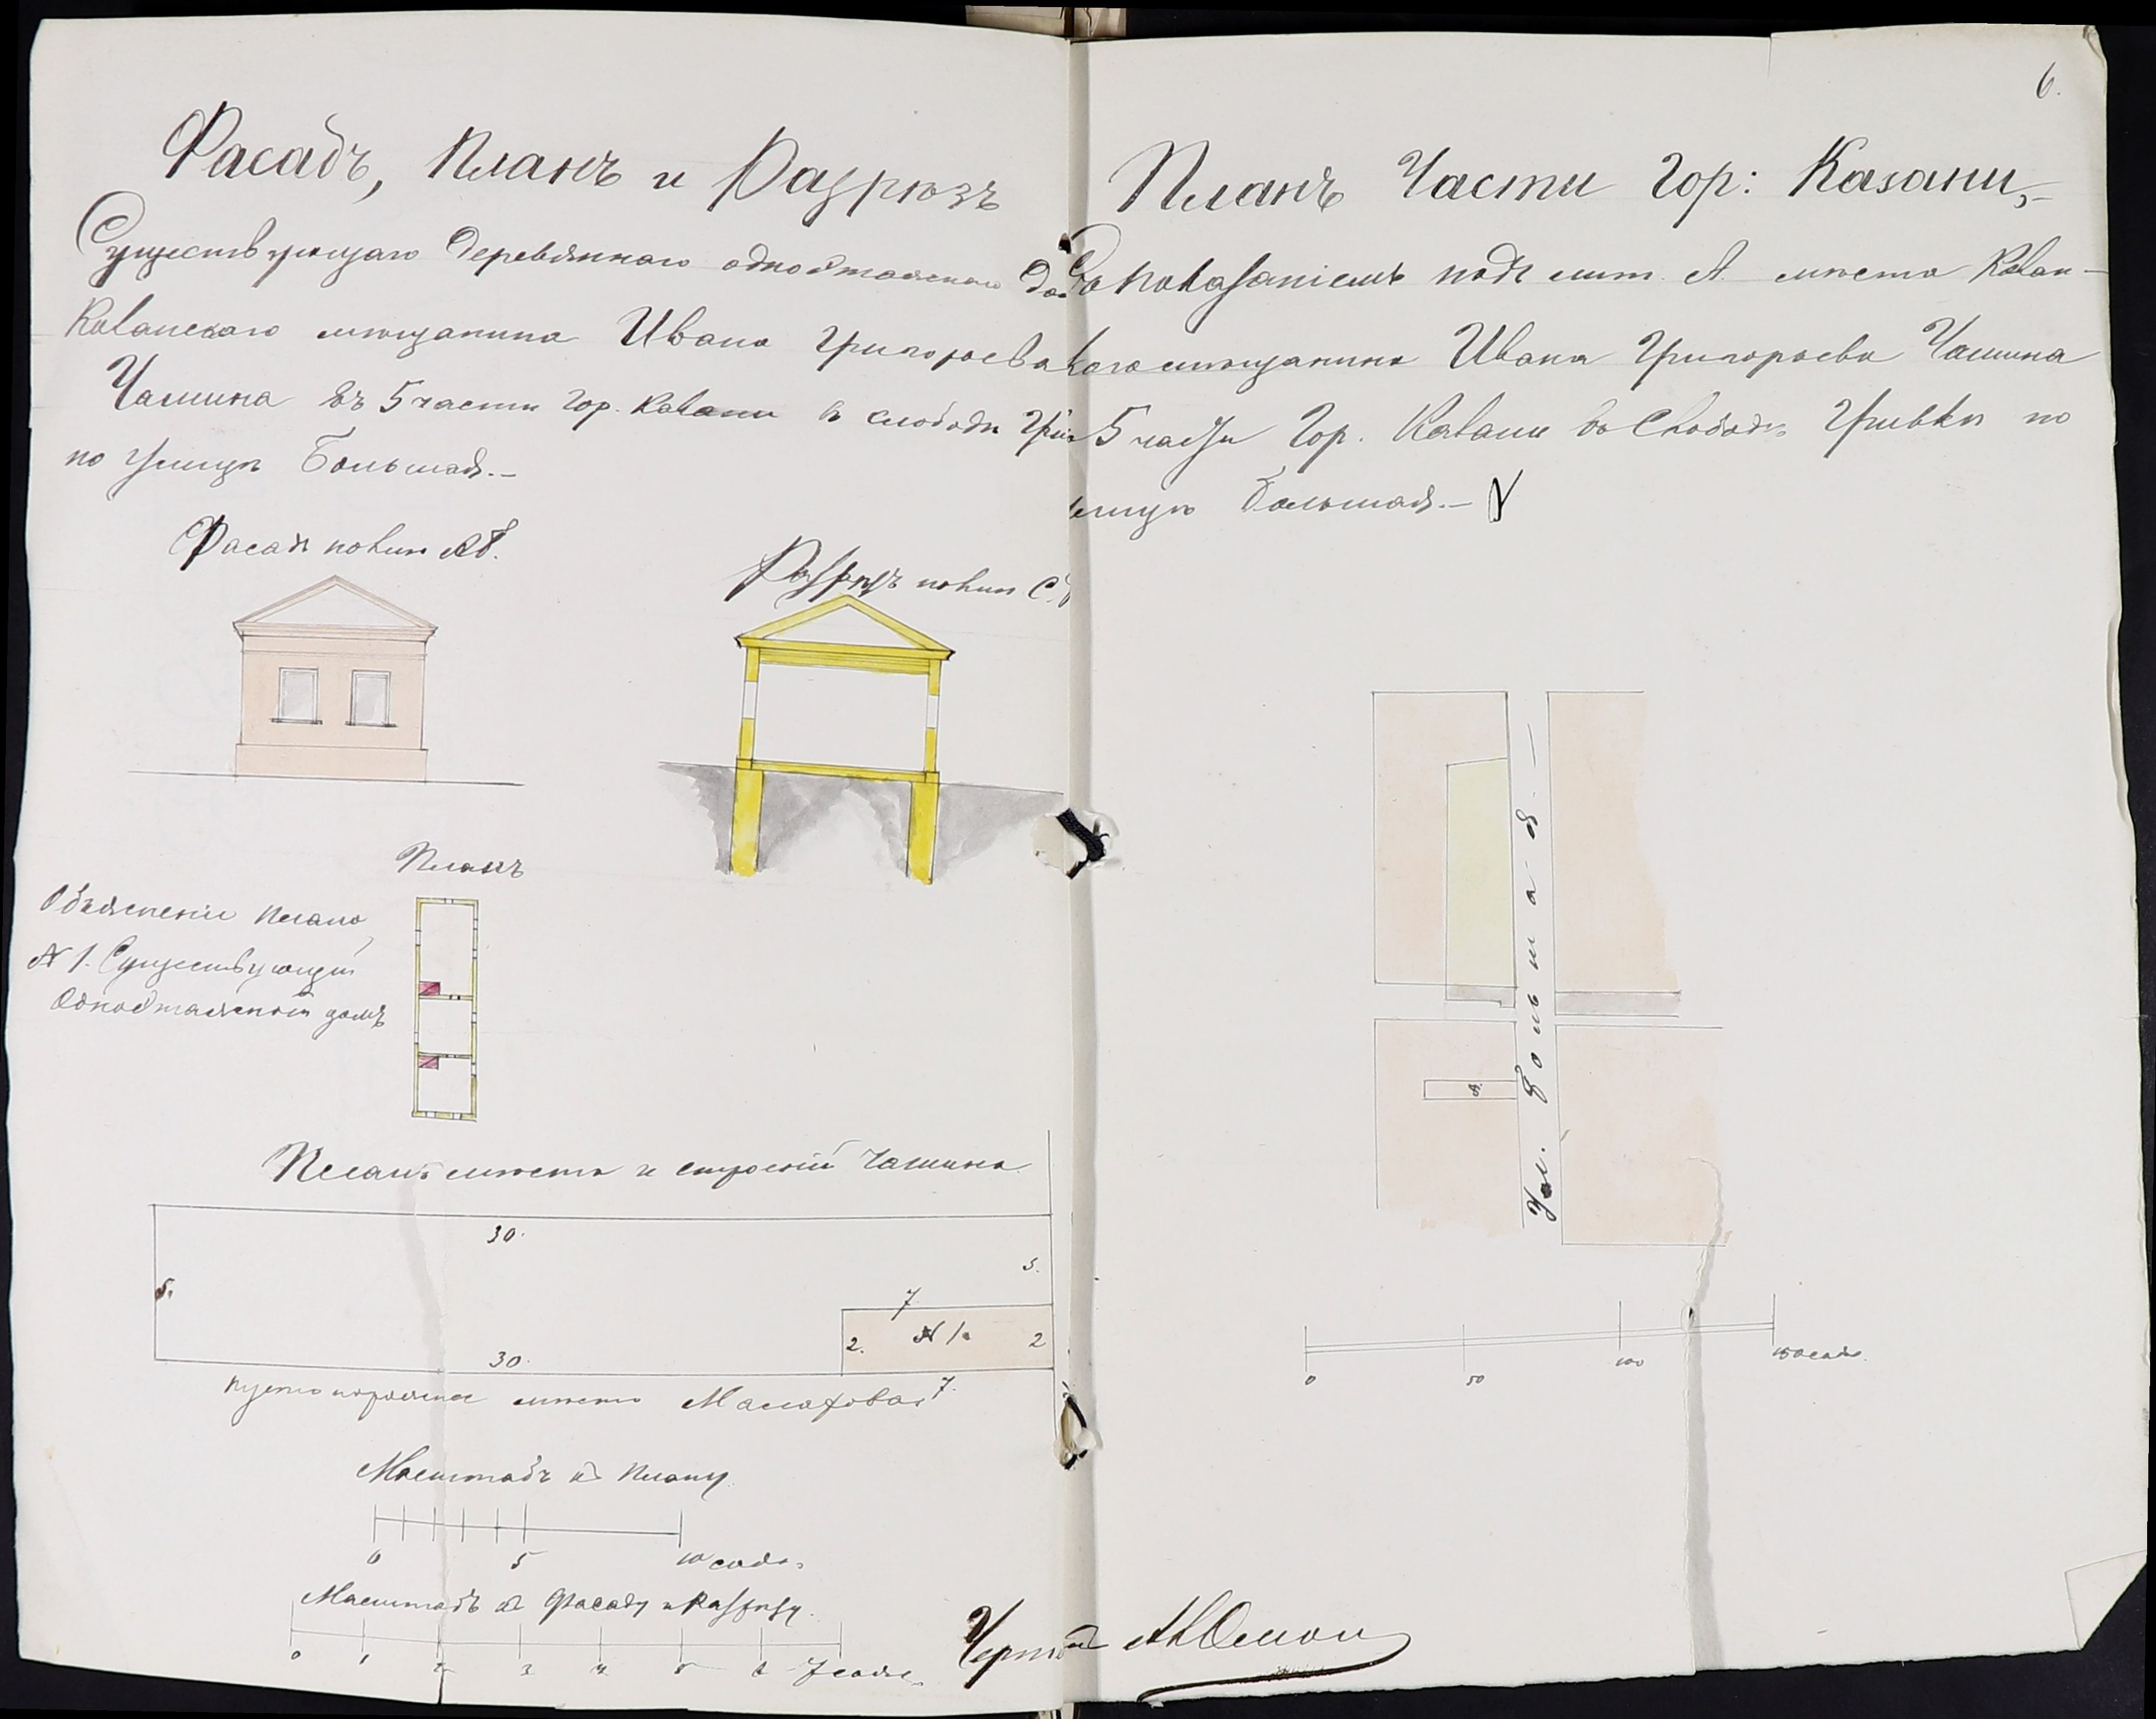 6.
Фасадъ, Планъ и Разрѣзъ
Существующаго деревяннаго одноэтажнаго до
Казанскаго мѣщанина Ивана Григорьева
Чашина въ 5 части гор. Казани в слободѣ Гри
по улицѣ Большая.—
Фасадъ по лин. АВ.
Разрѣзъ по лин С.
Планъ
Объясненіе плана
№ 1. Существующій
Одноэтажный домъ
Планъ мѣста и строеній Чашина
30.
5.
5.
7.
2.
№ 1.
2
30.
7.
пустопорожнее мѣсто
Масштабъ къ Плану
0 5 10 саж.
Масштабъ къ Фасаду и Разрѣзу.
0 1 2 3 4 5 6 7 саж.
Планъ Части Гор: Казани,—
Съ показаніемъ подъ лит. А. мѣста Казан—
скаго мѣщанина Ивана Григорьева Чашина
5 части Гор. Казани въ Слободѣ Гривкѣ по
улицѣ Большая.—
Ул. Большая—
А.
0 50 100 150 саж.
Чертилъ